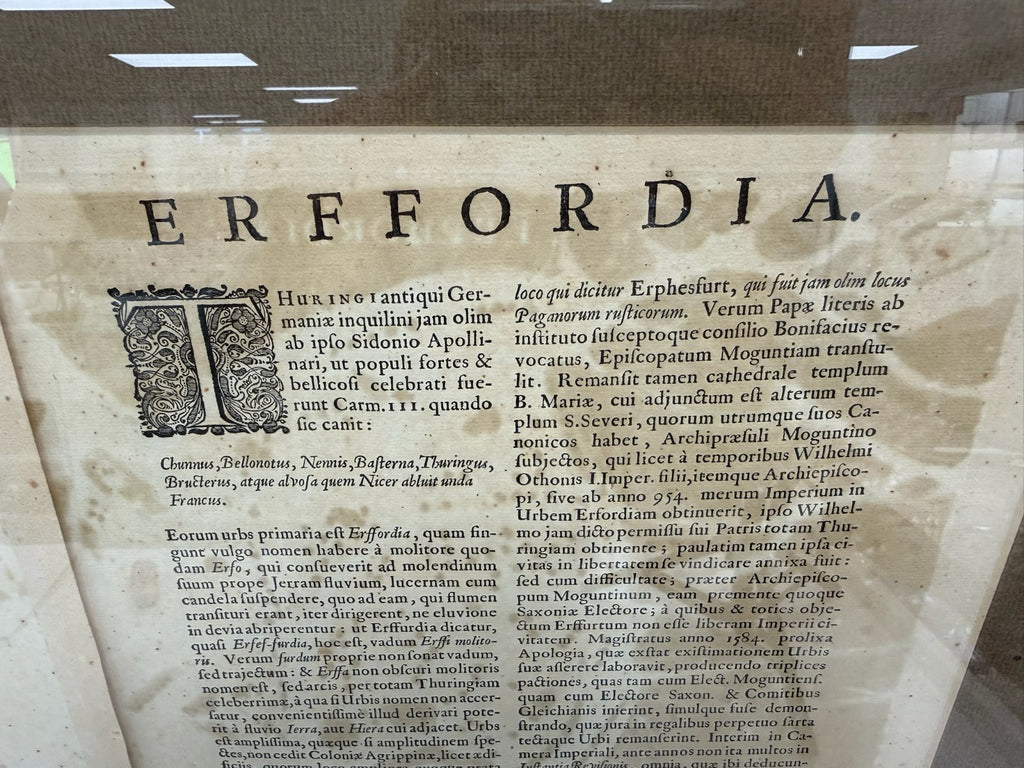 ERFFORDIA.
THURINGI antiqui Ger-
maniæ inquilini jam olim
ab ipſo Sidonio Apolli-
nari, ut populi fortes &
bellicoſi celebrati fue-
runt Carm. III. quando
ſic canit:
Chunnus, Bellonotus, Nennis, Baſterna, Thuringus,
Bructerus, atque alvoſa quem Nicer abluit unda
Francus.
Eorum urbs primaria eſt Erffordia, quam fin-
gunt vulgo nomen habere à molitore quo-
dam Erfo, qui conſueverit ad molendinum
ſuum prope Jerram fluvium, lucernam cum
candela ſuſpendere, quo ad eam, qui flumen
tranſituri erant, iter dirigerent, ne eluvione
in devia abriperentur: ut Erffurdia dicatur,
quaſi Erfeſ-furdia, hoc eſt, vadum Erffi molito-
ris. Verum furdum proprie non ſonat vadum,
ſed trajectum: & Erffa non obſcuri molitoris
nomen eſt, ſed arcis, per totam Thuringiam
celeberrimæ, à qua ſi Urbis nomen non accer-
ſatur, convenientiſſimè illud derivari pote-
rit à fluvio Ierra, aut Hiera cui adjacet. Urbs
eſt ampliſſima, quæque ſi amplitudinem ſpe-
ctes, non cedit Coloniæ Agrippinæ, licet ædi-
ficiis, quorum loco ampliora quoque prata
loco qui dicitur Erpheſfurt, qui fuit jam olim locus
Paganorum ruſticorum. Verum Papæ literis ab
inſtituto ſuſceptoque conſilio Bonifacius re-
vocatus, Epiſcopatum Moguntiam tranſtu-
lit. Remanſit tamen cathedrale templum
B. Mariæ, cui adjunctum eſt alterum tem-
plum S. Severi, quorum utrumque ſuos Ca-
nonicos habet, Archipræſuli Moguntino
ſubjectos, qui licet à temporibus Wilhelmi
Othonis I. Imper. filii, itemque Archiepiſco-
pi, ſive ab anno 954. merum Imperium in
Urbem Erfordiam obtinuerit, ipſo Wilhel-
mo jam dicto permiſſu ſui Patris totam Thu-
ringiam obtinente; paulatim tamen ipſa ci-
vitas in libertatem ſe vindicare annixa fuit:
ſed cum difficultate; præter Archiepiſco-
pum Moguntinum, eam premente quoque
Saxoniæ Electore; à quibus & toties obje-
ctum Erffurtum non eſſe liberam Imperii ci-
vitatem. Magiſtratus anno 1584. prolixa
Apologia, quæ exſtat exiſtimationem Urbis
ſuæ aſſerere laboravit, producendo triplices
pactiones, quas tam cum Elect. Moguntienſ.
quam cum Electore Saxon. & Comitibus
Gleichianis inierint, ſimulque fuſe demon-
ſtrando, quæ jura in regalibus perpetuo ſarta
tectaque Urbi remanſerint. Interim in Ca-
mera Imperiali, ante annos non ita multos in
Inſtantia Reviſionis, omnia, quæ ibi deducun-